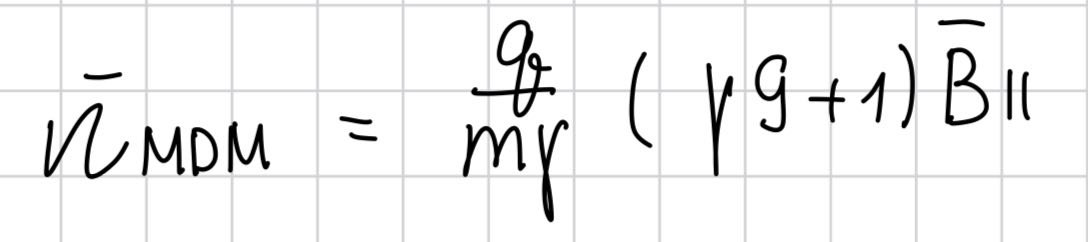 n̄ MDM = q/mγ (γg+1) B̄∥